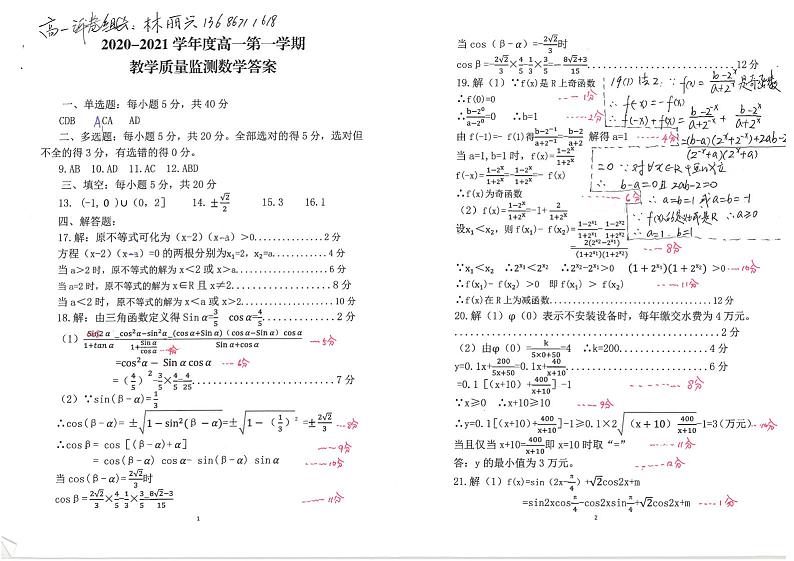 高一评卷组长：林丽兴 13686711618
2020-2021学年度高一第一学期
教学质量监测数学答案
一、单选题：每小题5分，共40分
CDB ACA AD
二、多选题：每小题5分，共20分。全部选对的得5分，选对但
不全的得3分，有选错的得0分。
9.AB 10.AD 11.AC 12.ABD
三、填空：每小题5分，共20分
13.（-1, 0）∪（0, 2］ 14. ±√2/2 15.3 16.1
四、解答题：
17.解：原不等式可化为（x-2）（x-a）>0..............2分
方程（x-2）（x-a）=0的两根分别为x₁=2，x₂=a...........4分
当a>2时，原不等式的解为x<2或x>a...................6分
当a=2时，原不等式的解为x∈R且x≠2...................8分
当a<2时，原不等式的解为x<a或x>2...................10分
18.解：由三角函数定义得Sinα=3/5 cosα=4/5...............2分
（1）Sin2α/1+tanα=cos²α-sin²α/1+Sinα/cosα=（cosα+Sinα）（cosα-Sinα）cosα/Sinα+cosα ----5分
=cos²α- Sinα cosα ---6分
=（4/5）²-3/5×4/5=4/25..............................7分
（2）∵sin(β-α)=1/3
∴cos(β-α)= ±√1-sin²(β-α)=±√1-（1/3）²=±2√2/3 ---8分
∴cosβ= cos［(β-α)+α］ ---9分
= cos(β-α) cosα- sin(β-α) sinα ----10分
当cos(β-α)=2√2/3时
cosβ=2√2/3×4/5-1/3×3/5=8√2-3/15 ----11分
1
当cos（β-α）=-2√2/3时
cosβ=-2√2/3×4/5-1/3×3/5=-8√2+3/15..............................12分
19.解（1）∵f(x)是R上奇函数
∴f(0)=0 ---1分
∴b-2⁰/a+2⁰=0 ∴b=1 -----2分
由f(-1)=- f(1)得b-2⁻¹/a+2⁻¹=-b-2/a+2 解得a=1 ----4分
当a=1,b=1时，f(x)=1-2ˣ/1+2ˣ
f(-x)=1-2⁻ˣ/1+2⁻ˣ=-1-2ˣ/1+2ˣ=- f(x)
∴f(x)为奇函数 ----6分
19(1)法2：∵f(x)=b-2ˣ/a+2ˣ是奇函数
∴f(-x)=-f(x)
∴f(-x)+f(x)=b-2⁻ˣ/a+2⁻ˣ+b-2ˣ/a+2ˣ
=(b-a)(2ˣ+2⁻ˣ)+2ab-2/(2⁻ˣ+a)(2ˣ+a)
=0 ∵对∀x∈R
∴b-a=0且2ab-2=0
∴a=b=1或a=b=-1
∴a≥0
∴a=1 b=1
（2）f(x)=1-2ˣ/1+2ˣ=-1+2/1+2ˣ
设x₁<x₂，则f(x₁)- f(x₂)=1-2ˣ¹/1+2ˣ¹-1-2ˣ²/1+2ˣ²
=2(2ˣ²-2ˣ¹)/(1+2ˣ¹)(1+2ˣ²) ---8分
∵x₁<x₂ ∴2ˣ¹<2ˣ² ∴2ˣ²-2ˣ¹>0 （1+2ˣ¹)(1+2ˣ²）>0 ---10分
∴f(x₁)- f(x₂) >0 即f(x₁) > f(x₂) ---11分
∴f(x)在R上为减函数..................................12分
20.解（1）φ（0）表示不安装设备时，每年缴交水费为4万元。
.....................................................2分
（2）由φ（0）=k/5×0+50=4 ∴k=200..................4分
y=0.1x+200/5x+50=0.1x+40/x+10............................6分
=0.1［(x+10)+400/x+10］-1 --------8分
∵x≥0 ∴x+10≥10 ---9分
∴y=0.1［(x+10)+400/x+10］-1≥0.1×2√（x+10）400/x+10-1=3(万元) --10分
当且仅当x+10=400/x+10即x=10时取“=” ----11分
答：y的最小值为3万元。 ----12分
21.解（1）f(x)=sin（2x-π/4）+√2cos2x+m
=sin2xcosπ/4-cos2xsinπ/4+√2cos2x+m ----1分
2